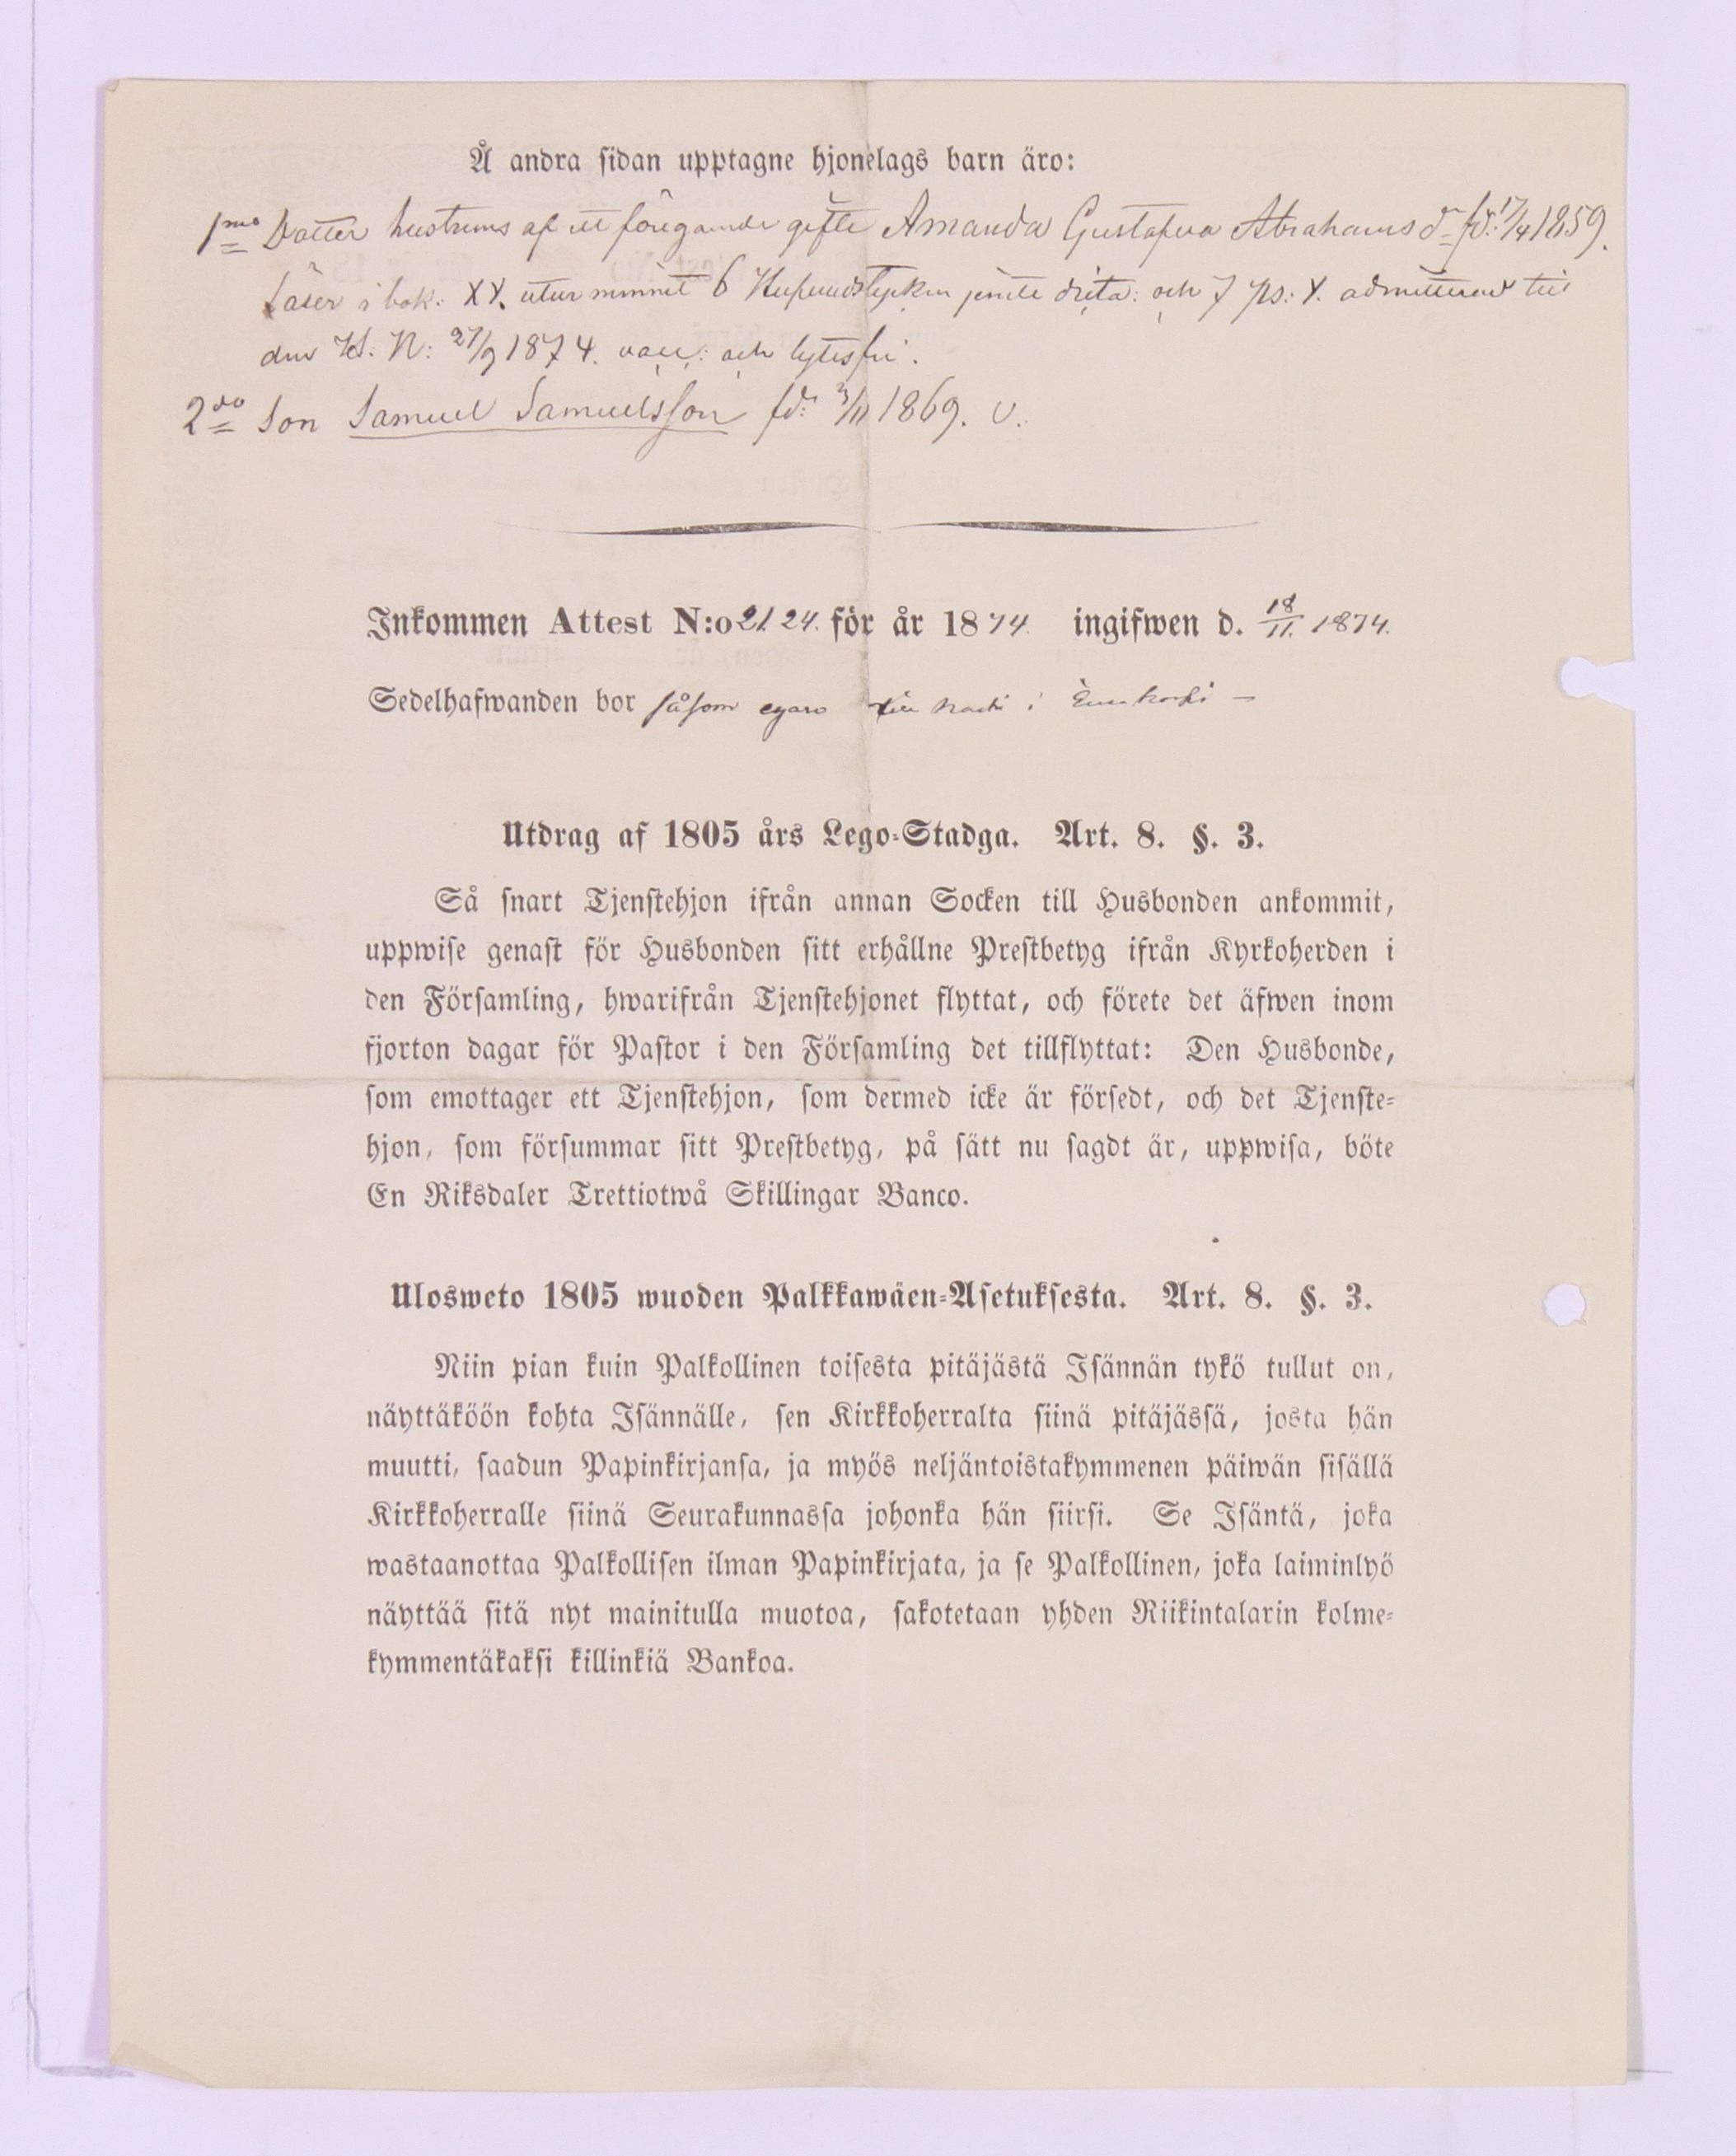 Å andra sidan upptagne hjonelags barn äro:
1mo Dotter hustruns af ett föregående gifte Amanda Gustafva Abrahamsdr fd: 17/4 1859.
Läser i bok: XX. utur minnet 6 Hufvudstycken jemte och 7 ps: X. admitterad till
den H: N: 27/9 1874. vacc: och lytesfri.
2do Son Samuel Samuelsson fd: 3/11 1869. v.
Inkommen Attest N:o 21 24. för år 1874 ingifwen d. 18/11. 1874.
Sedelhafwanden bor såsom egare till i
Utdrag af 1805 års Lego-Stadga. Art. 8. §. 3.
Så snart Tjenstehjon ifrån annan Socken till Husbonden ankommit,
uppwise genast för Husbonden sitt erhållne Prestbetyg ifrån Kyrkoherden i
den Församling, hwarifrån Tjenstehjonet flyttat, och förete det äfwen inom
fjorton dagar för Pastor i den Församling det tillflyttat: Den Husbonde,
som emottager ett Tjenstehjon, som dermed icke är försedt, och det Tjenste-
hjon, som försummar sitt Prestbetyg, på sätt nu sagdt är, uppwisa, böte
En Riksdaler Trettiotwå Skillingar Banco.
Ulosweto 1805 wuoden Palkkawäen-Asetuksesta. Art. 8. §. 3.
Niin pian kuin Palkollinen toisesta pitäjästä Isännän tykö tullut on,
näyttäköön kohta Isännälle, sen Kirkkoherralta siinä pitäjässä, josta hän
muutti, saadun Papinkirjansa, ja myös neljäntoistakymmenen päiwän sisällä
Kirkkoherralle siinä Seurakunnassa johonka hän siirsi. Se Isäntä, joka
wastaanottaa Palkollisen ilman Papinkirjata, ja se Palkollinen, joka laiminlyö
näyttää sitä nyt mainitulla muotoa, sakotetaan yhden Riikintalarin kolme-
kymmentäkaksi killinkiä Bankoa.